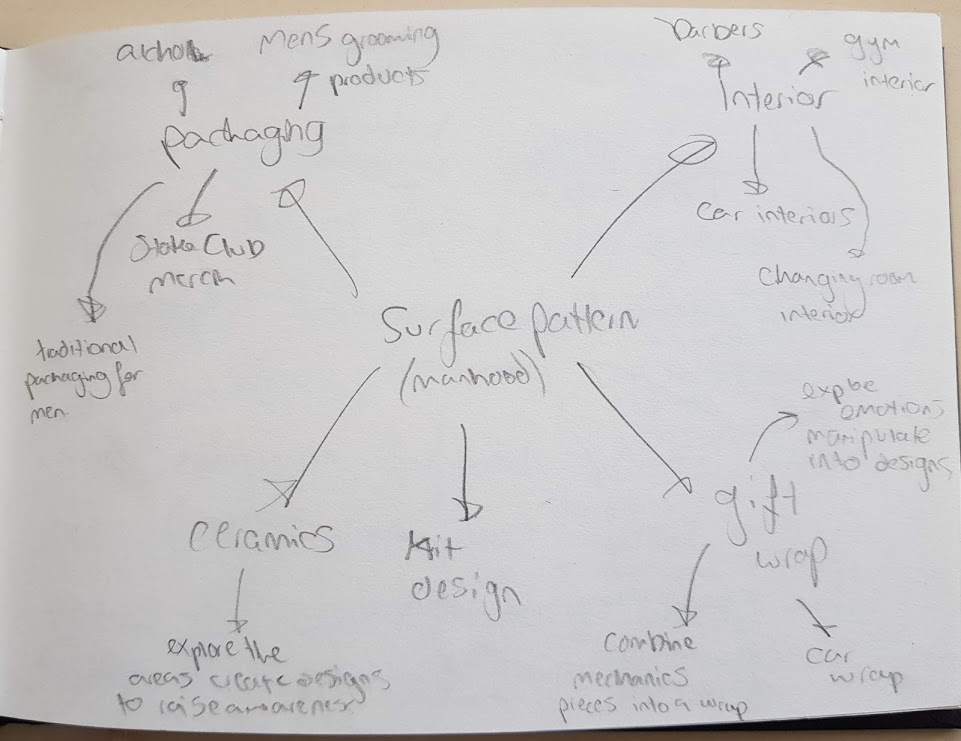 Mens grooming
products
Barbers
gym
interior
Interior
packaging
Car interiors
Stoke Club
merch
Changing room
interior
traditional
packaging for
men
Surface pattern
(manhood)
emotions
manipulate
into designs
gift
wrap
Ceramics
Kit
design
explore the
areas create designs
to raise awareness
Combine
mechanics
pieces into a wrap
car
wrap